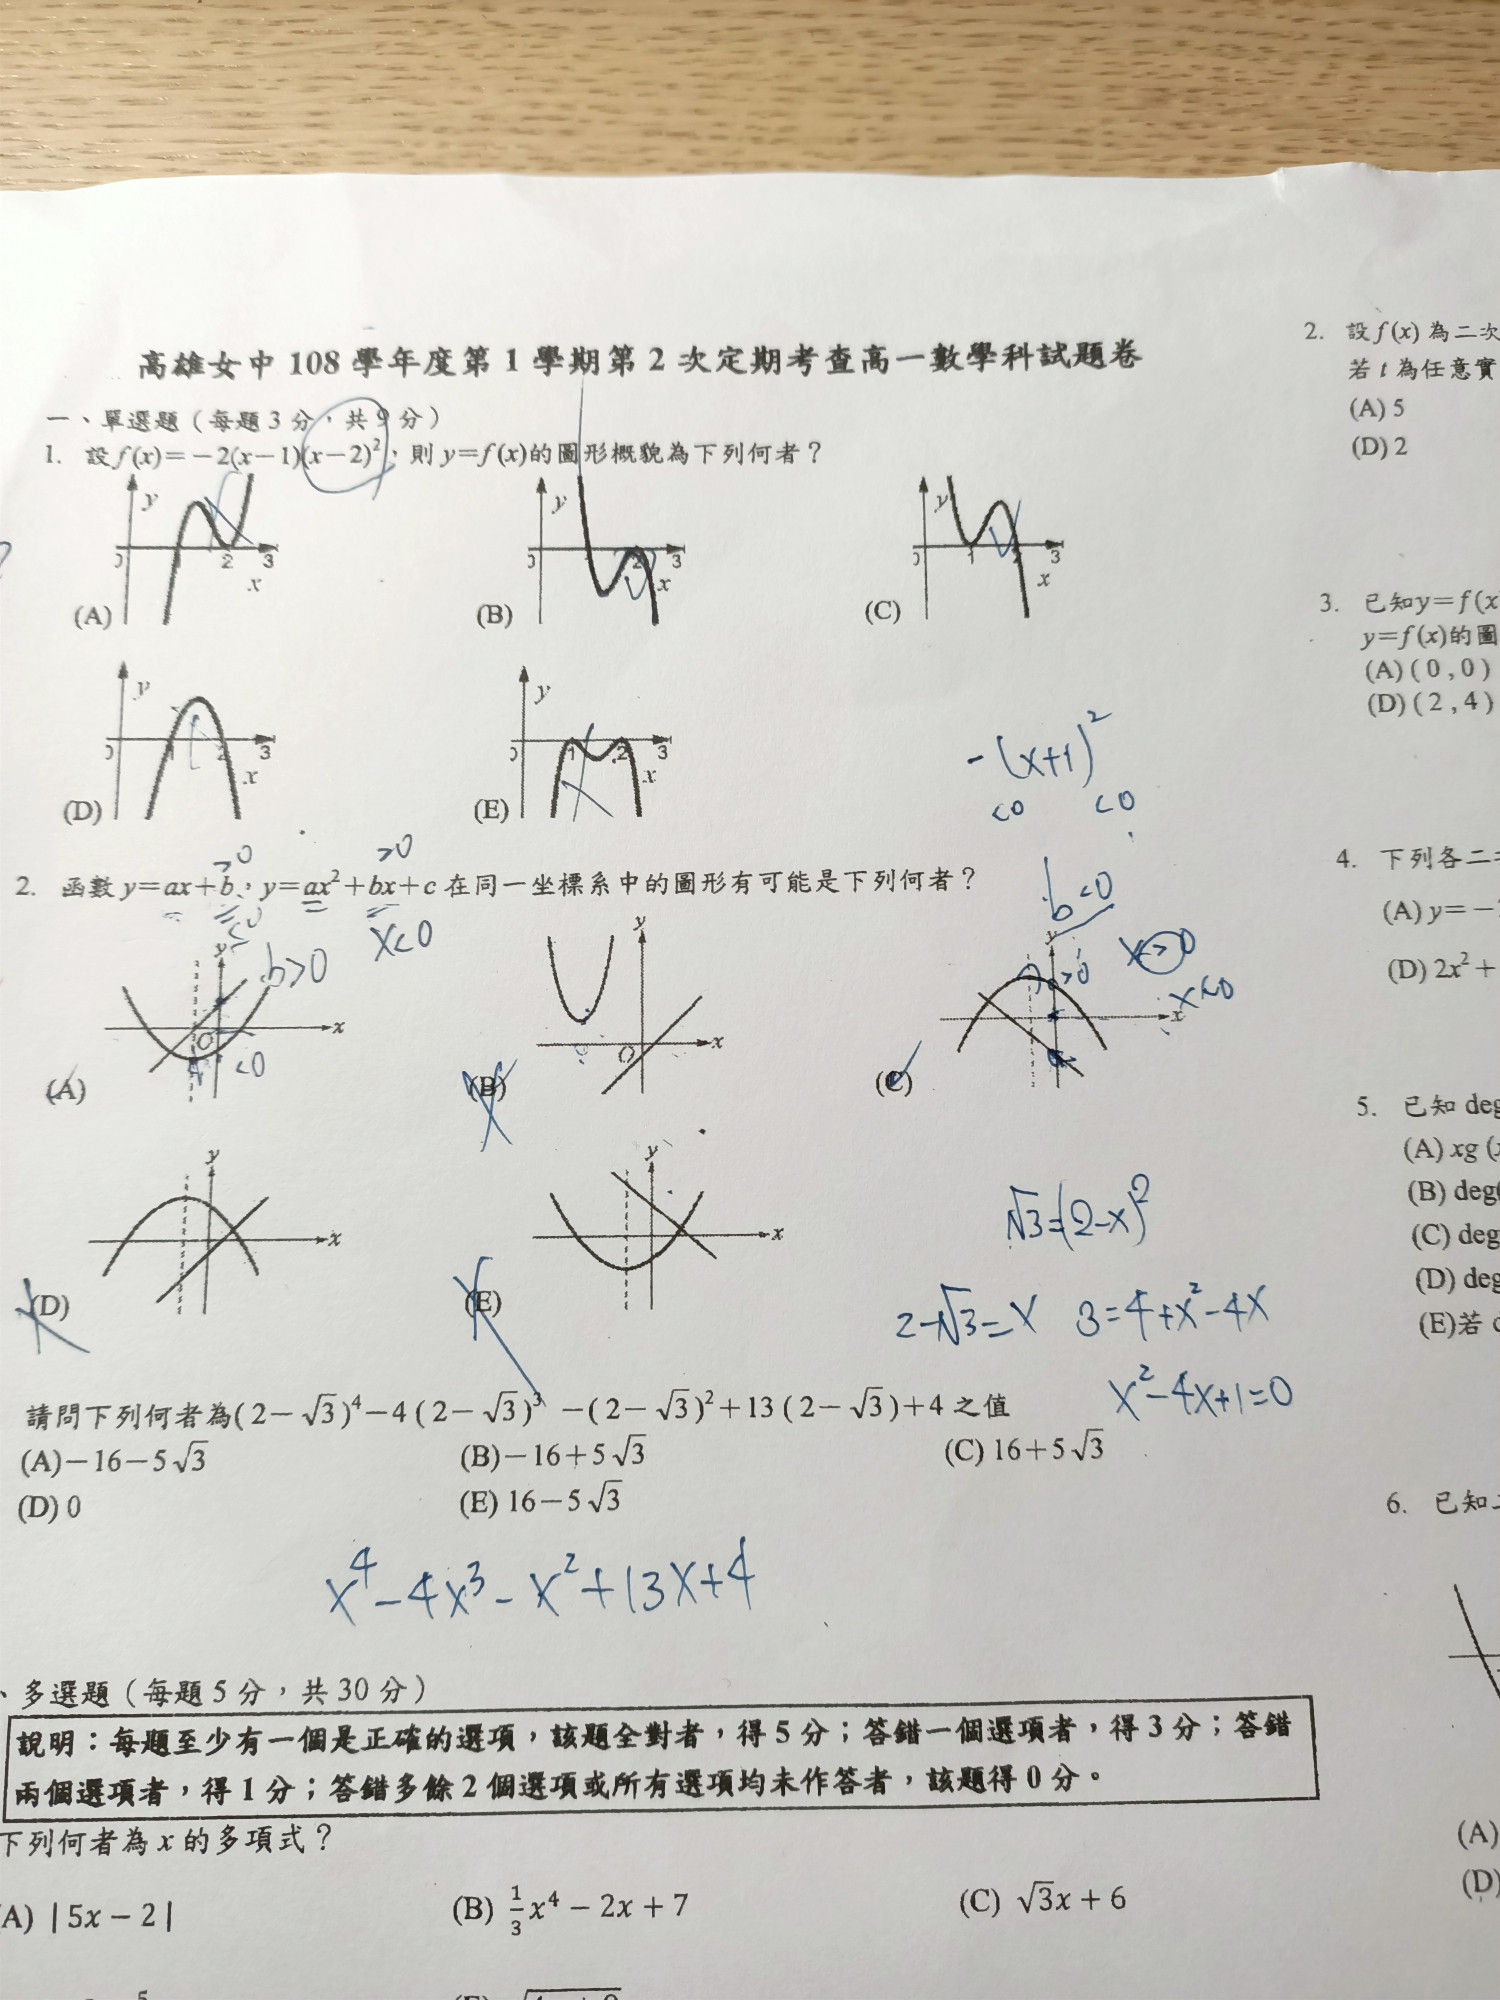 高雄女中 108 學年度第 1 學期第 2 次定期考查高一數學科試題卷
一、單選題(每題 3 分,共 9 分)
1. 設 f(x)=-2(x-1)(x-2)²,則 y=f(x)的圖形概貌為下列何者?
y y y
0 1 2 3 0 2 3 0 1 2 3
x x x
(A) (B) (C)
y y
0 1 2 3 0 1 2 3
x x
(D) (E)
-(x+1)²
<0 <0
>0 >0
2. 函數 y=ax+b,y=ax²+bx+c 在同一坐標系中的圖形有可能是下列何者?
<0 b>0 x<0 b<0
y y y
>0 x>0
x<0
O x O x x
<0
(A) (B) (C)
y y
x x
(D) (E)
√3=(2-x)²
2-√3=x 3=4+x²-4x
x²-4x+1=0
請問下列何者為(2-√3)⁴-4(2-√3)³-(2-√3)²+13(2-√3)+4 之值
(A)-16-5√3 (B)-16+5√3 (C) 16+5√3
(D) 0 (E) 16-5√3
x⁴-4x³-x²+13x+4
、多選題(每題 5 分,共 30 分)
說明:每題至少有一個是正確的選項,該題全對者,得 5 分;答錯一個選項者,得 3 分;答錯
兩個選項者,得 1 分;答錯多餘 2 個選項或所有選項均未作答者,該題得 0 分。
下列何者為 x 的多項式?
(A) |5x-2| (B) 1/3 x⁴-2x+7 (C) √3x+6
2. 設 f(x) 為二次
若 t 為任意實
(A) 5
(D) 2
3. 已知y=f(x
y=f(x)的圖
(A) ( 0 , 0 )
(D) ( 2 , 4 )
4. 下列各二
(A) y=-
(D) 2x²+
5. 已知 deg
(A) xg (
(B) deg(
(C) deg
(D) deg
(E)若
6. 已知
(A)
(D)